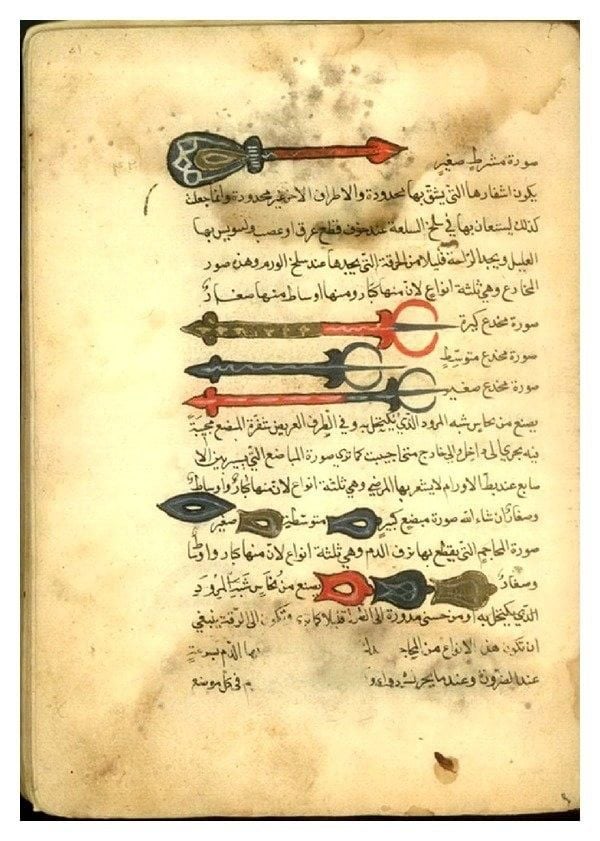 صورة مشرط صغير
يكون اشفارها التي يشق بها محدودة والاطراف الاخر غير محدودة وانما جعلت
كذلك ليستعان بها في سلخ السلعة عند خوف قطع عرق او عصب وتسويس بها
العليل ويجد الراحة قليلا من الحرقة التي يجدها عند سلخ الورم وهذه صور
المخادع وهي ثلثة انواع لان منها كبار ومنها اوساط ومنها صغار
صورة مخدع كبيرة
صورة مخدع متوسط
صورة مخدع صغير
يصنع من نحاس شبه المرود الذي يكتحل به وفي الطرف العريض
الى داخل والى خارج متى احببت كما ترى صورة المباضع التي بين الا
صابع عند بط الاورام لا يشعر بها المرضى وهي ثلثة انواع لان منها كبار واوساط
وصغار ان شاء الله صورة مبضع كبير متوسط صغير
صورة المحاجم التي يقطع بها نزف الدم وهي ثلثة انواع لان منها كبار واوساط
وصغار يصنع من نحاس شبه المرود
الذي يكتحل به او من مدورة الى قليلا كما ترى وتكون الى الرقة ينبغي
ان تكون هذه الانواع من بها الدم بسرعة
عند الضرورة وعندما دواء في كل موضع